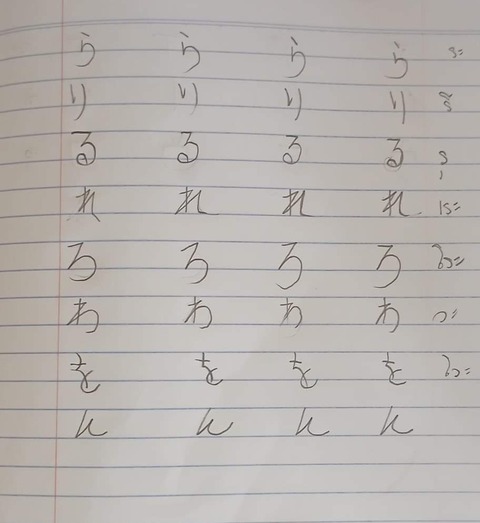 ら ら ら ら
り り り り
る る る る
れ れ れ れ
ろ ろ ろ ろ
わ わ わ わ
を を を を
ん ん ん ん